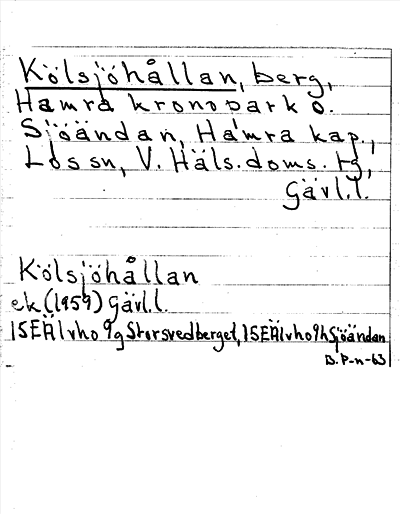 Kölsjöhållan, berg,
Hamra kronopark o.
Sjöändan, Hamra kap.,
Los sn, V. Häls. doms. tg,
Gävl.l.
Kölsjöhållan
ek (1959) Gävl.l.
15E Älvho 9g Storsvedberget, 15E Älvho 9h Sjöändan
B. P-n-63